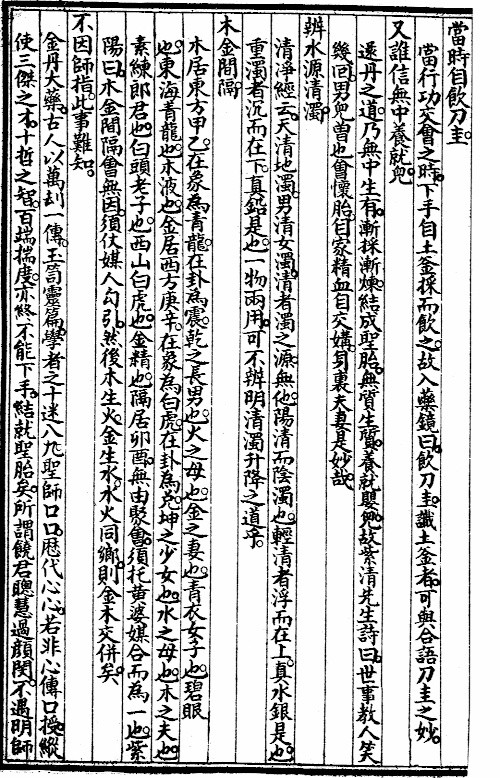 當時自飲刀圭
當行功交會之時。下手自土釜採而飲之。故入藥鏡曰。飲刀圭。識土釜者。可與合語刀圭之妙。
又誰信無中養就兒
還丹之道。乃無中生有。漸採漸煉。結成聖胎。無質生質。養就嬰兒。故紫清先生詩曰。世事教人笑
幾回。男兒曾也會懷胎。自家精血自交媾。身裏夫妻是妙哉。
辨水源清濁。
清淨經云。天清地濁。男清女濁。清者濁之源。無他。陽清而陰濁也。輕清者浮而在上。真水銀是也。
重濁者沉而在下。真鉛是也。一物兩用。可不辨明清濁升降之道乎。
木金間隔
木居東方甲乙。在象為青龍。在卦為震。乾之長男也。火之母也。金之妻也。青衣女子也。碧眼
也。東海青龍也。木液也。金居西方庚辛。在象為白虎。在卦為兌。坤之少女也。水之母也。木之夫也。
素練郎君也。白頭老子也。西山白虎也。金精也。隔居卯酉。無由聚會。須托黄婆媒合而為一也。紫
陽曰。木金間隔會無因。須仗媒人勾引。然後木生火。金生水。水火同鄉。則金木交併矣。
不因師指。此事難知。
金丹大藥。古人以萬刦一傳。玉笥靈篇。學者之十迷八九。聖師口口。歷代心心。若非心傳口授。縱
使三傑之才。十哲之智。百端揣度。亦終不能下手。結就聖胎矣。所謂饒君聰慧過顏閔。不遇明師